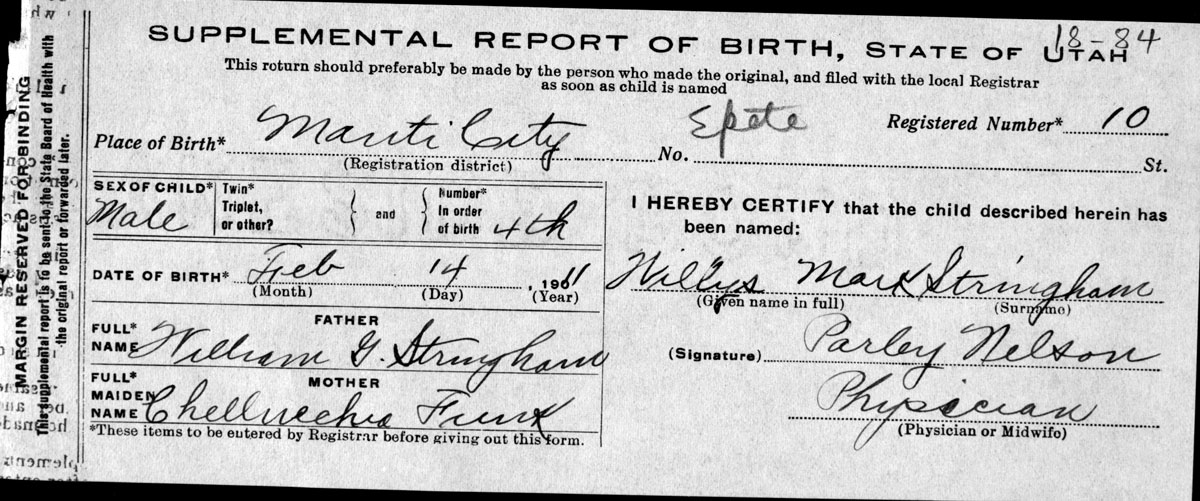 18-84
SUPPLEMENTAL REPORT OF BIRTH, STATE OF UTAH
This return should preferably be made by the person who made the original, and filed with the local Registrar
as soon as child is named
Place of Birth* Manti City No. St.
(Registration district)
Registered Number* 10
SEX OF CHILD* Male
Twin*
Triplet,
or other?
and
Number*
In order
of birth 4th
DATE OF BIRTH* Feb 14, 1911
(Month) (Day) (Year)
FATHER
FULL*
NAME William G. Stringham
MOTHER
FULL*
MAIDEN
NAME Funk
*These items to be entered by Registrar before giving out this form.
I HEREBY CERTIFY that the child described herein has
been named:
Willys Mark Stringham
(Given name in full) (Surname)
(Signature) Parley Nelson
Physician
(Physician or Midwife)
MARGIN RESERVED FOR BINDING
This supplemental report is to be sent to the State Board of Health with
the original report or forwarded later.